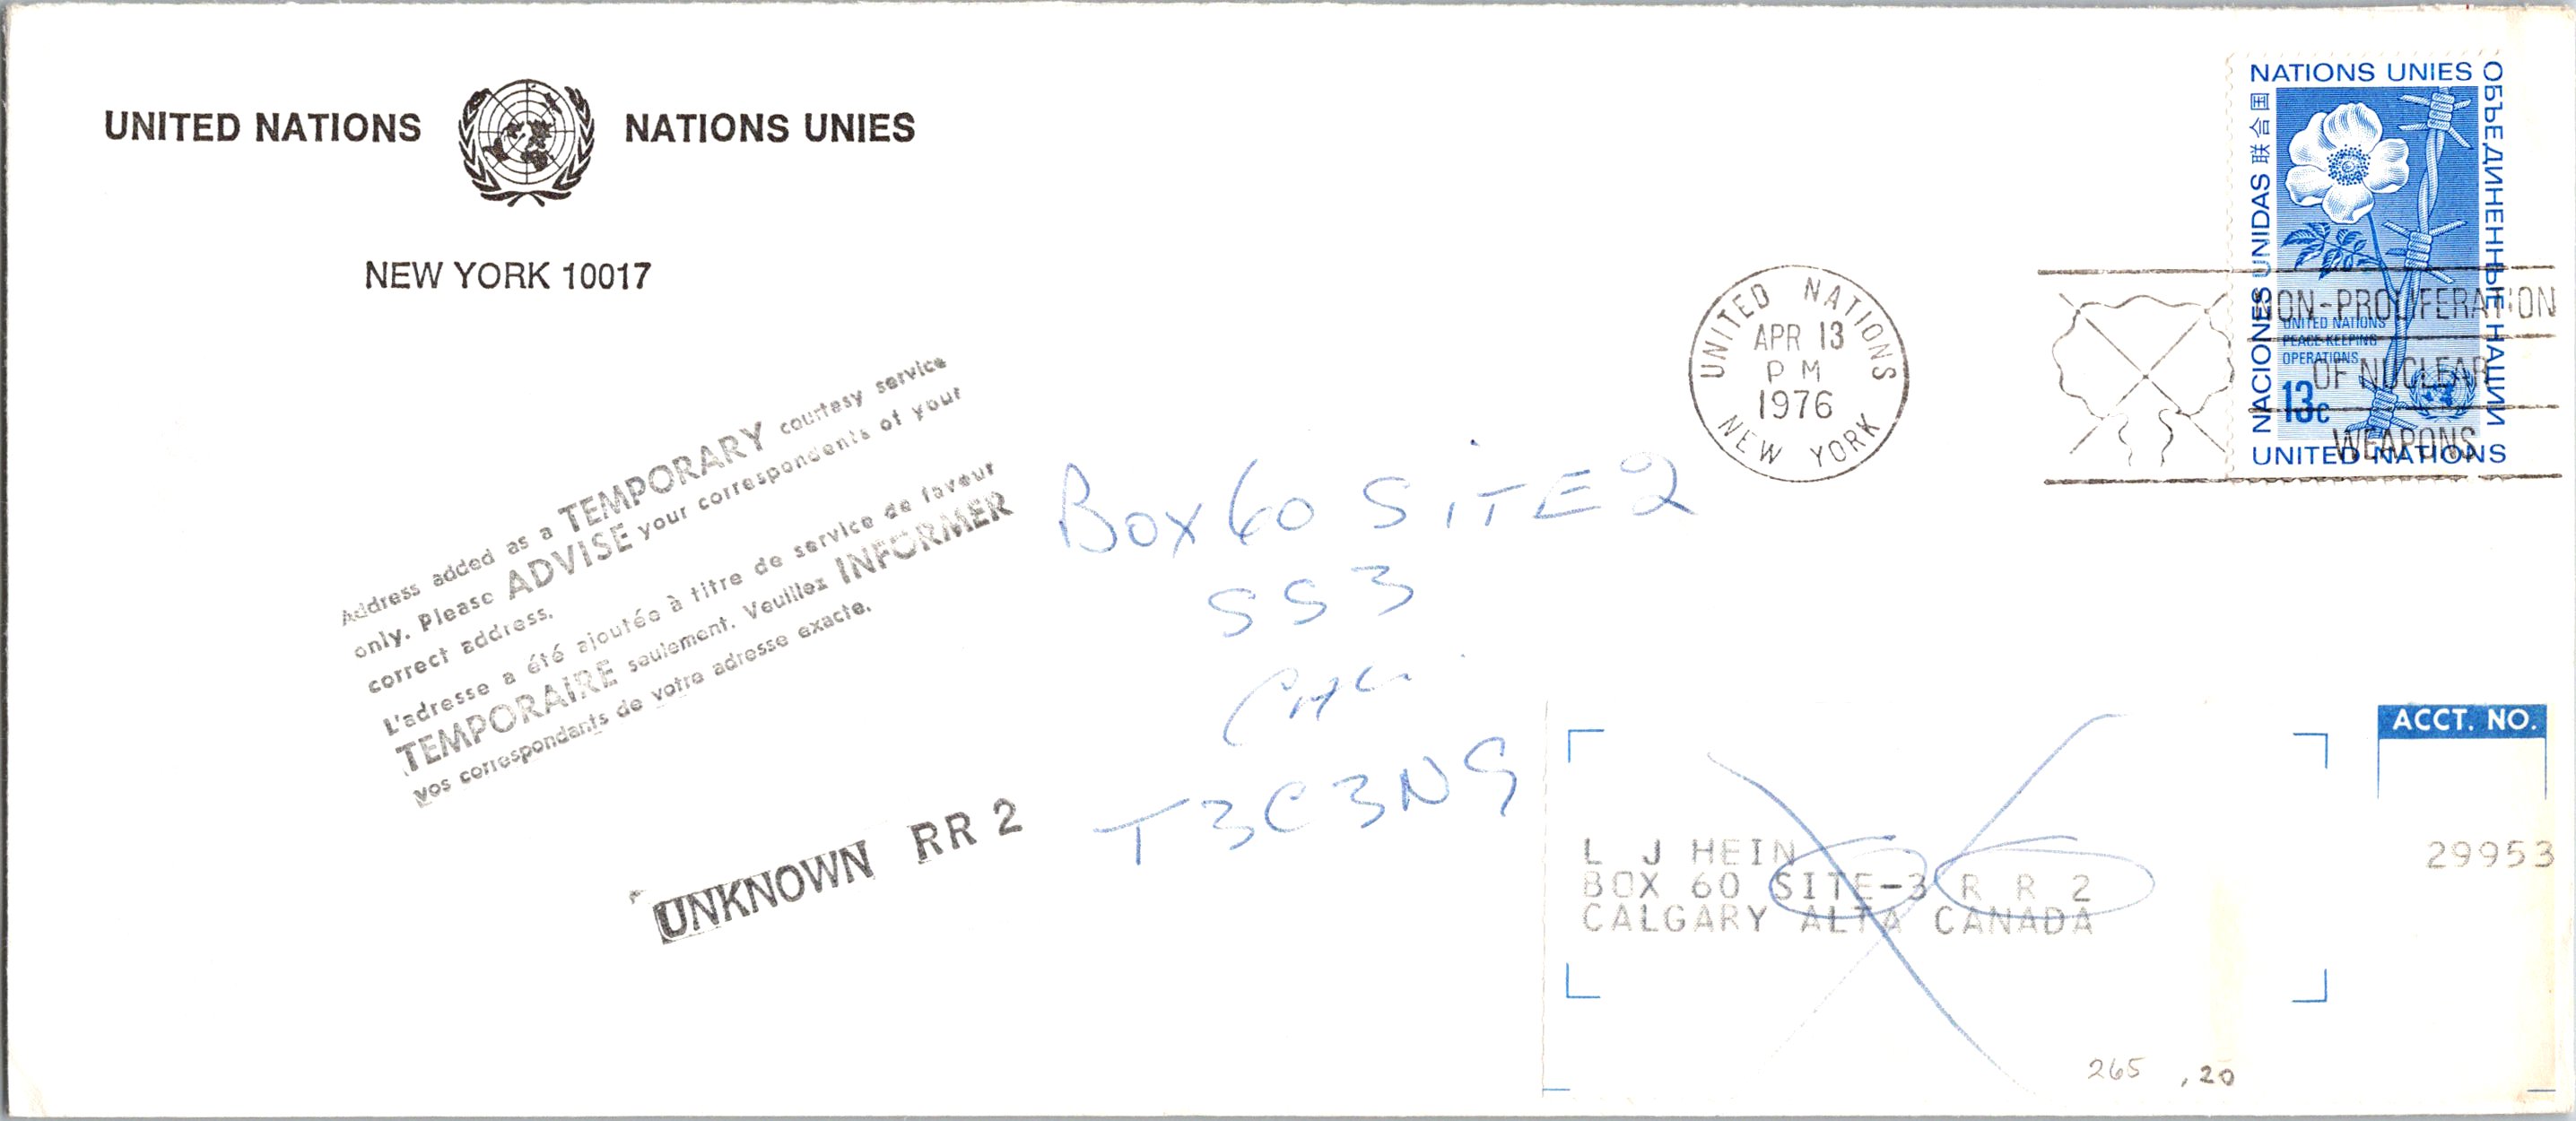 UNITED NATIONS NATIONS UNIES
NEW YORK 10017
NATIONS UNIES
ОБЪЕДИНЕННЫЕ НАЦИИ
NACIONES UNIDAS 联合国
UNITED NATIONS
PEACE-KEEPING
OPERATIONS
13c
UNITED NATIONS
UNITED NATIONS
APR 13
PM
1976
NEW YORK
NON-PROLIFERATION
OF NUCLEAR
WEAPONS
Address added as a TEMPORARY courtesy service
only. Please ADVISE your correspondents of your
correct address.
L'adresse a été ajoutée à titre de service de faveur
TEMPORAIRE seulement. Veuillez INFORMER
vos correspondants de votre adresse exacte.
UNKNOWN RR 2
Box 60 SITE 2
SS3
T3C3N9
ACCT. NO.
29953
L J HEIN
BOX 60 SITE-3 R R 2
CALGARY ALTA CANADA
265 ,20